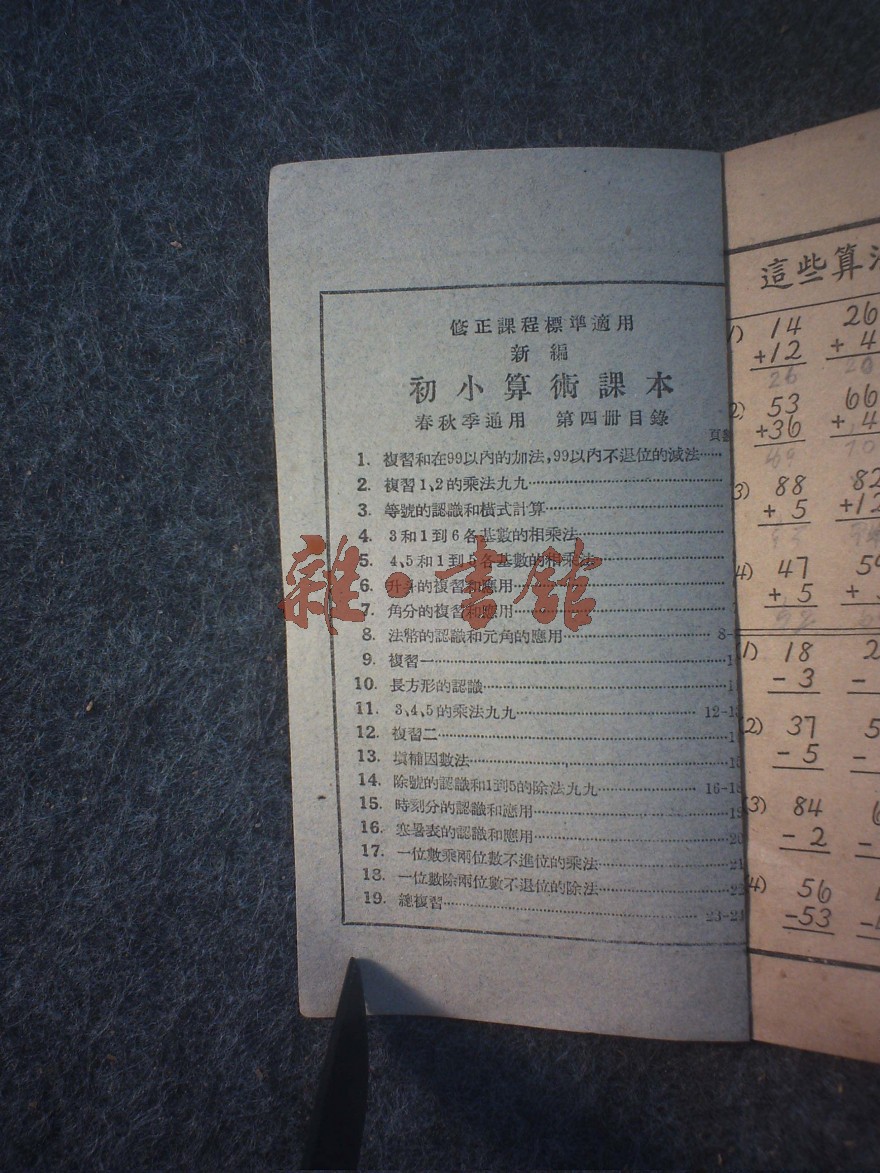 修正課程標準適用
新編
初小算術課本
春秋季通用 第四冊目錄
頁數
1. 複習和在99以內的加法,99以內不退位的減法……
2. 複習1、2的乘法九九……
3. 等號的認識和橫式計算……
4. 3和1到6各基數的相乘法……
5. 4、5和1到5各基數的相乘法……
6. 升斗的複習和應用……
7. 角分的複習和應用……
8. 法幣的認識和元角的應用……8-
9. 複習一……1
10. 長方形的認識……1
11. 3、4、5的乘法九九……12-13
12. 複習二……1
13. 填補因數法……15
14. 除號的認識和1到5的除法九九……16-18
15. 時刻分的認識和應用……19
16. 寒暑表的認識和應用……20
17. 一位數乘兩位數不進位的乘法……21
18. 一位數除兩位數不退位的除法……22
19. 總複習……23-24
雜·書館
這些算法
(1) 14 26
+12 + 4
26 20
(2) 53 66
+36 + 4
(3) 88 82
+ 5 +12
(4) 47 59
+ 5 +
(1) 18 2
- 3 -
(2) 37 5
- 5 -
(3) 84 6
- 2 -
(4) 56
-53 -